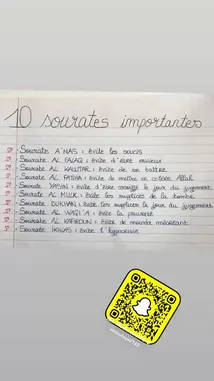 10 sourates importantes
Sourate A'NAS : évite les soucis
Sourate AL FALAQ : évite d'être envieux
Sourate AL KAUTAR : évite de se battre
Sourate AL FATIHA : évite de mettre en colère Allah
Sourate YASIN : évite d'être assoiffé le jour du jugement
Sourate AL MULK : évite les supplices de la tombe
Sourate DUKHAN : évite les supplices le jour du jugement
Sourate AL WAQI'A : évite la pauvreté
Sourate AL KAFIROUN : évite de mourir mécréant
Sourate IKHLAS : évite l'hypocrisie